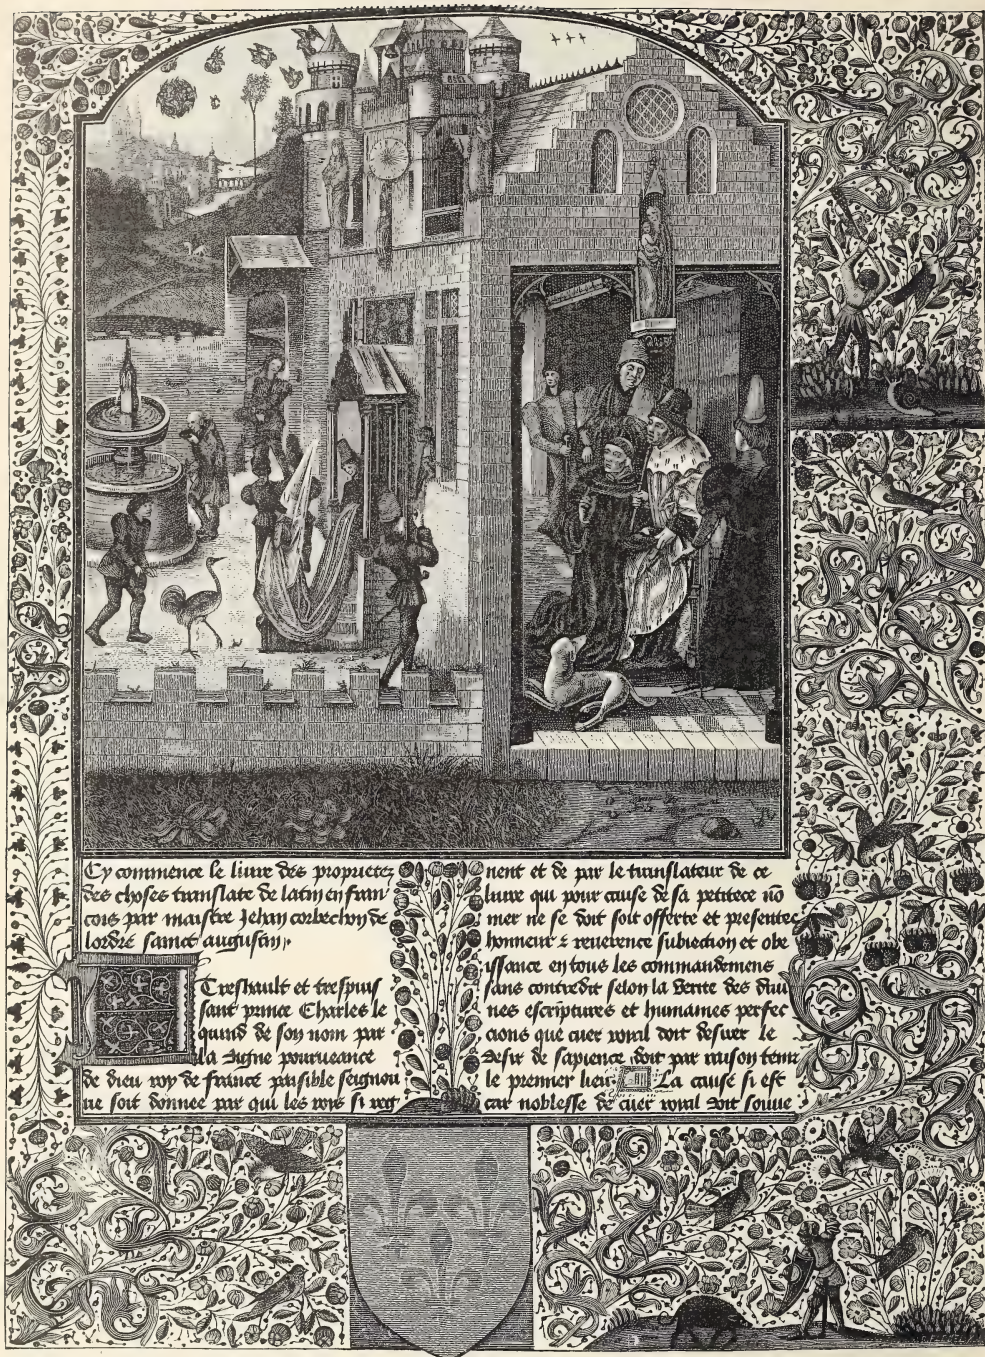 Cy commence le liure des proprietez
des choses translate de latin en fran
cois par maistre Jehan corbechon de
lordre sainct augustin,
Treshault et trespuis
sant prince Charles le
quind de son nom par
la digne pourueance
de dieu roy de france paisible seignou
rie soit donnee par qui les roys si reg
nent et de par le translateur de ce
liure qui pour cause de sa petitece nō
mer ne se doit soit offerte et presentee
honneur ⁊ reuerence subiection et obe
issance en tous les commandemens
sans contredit selon la verite des diui
nes escriptures et humaines perfec
cions que cuer royal doit desirer le
desir de sapience doit par raison tenir
le premier lieu. La cause si est
car noblesse de cuer royal doit souue